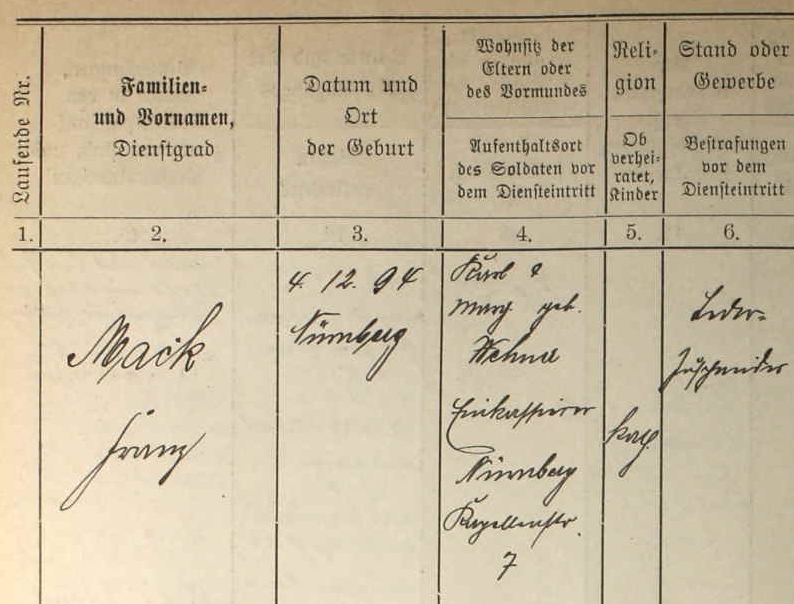 Laufende Nr.
Familien-
und Vornamen,
Dienstgrad
Datum und
Ort
der Geburt
Wohnsitz der
Eltern oder
des Vormundes
Aufenthaltsort
des Soldaten vor
dem Diensteintritt
Reli-
gion
Ob
verhei-
ratet,
Kinder
Stand oder
Gewerbe
Bestrafungen
vor dem
Diensteintritt
1.
2.
3.
4.
5.
6.
Mack
Franz
4. 12. 94
Nürnberg
Karl &
Marg. geb.
Einkassierer
Nürnberg
Kapellenstr.
7
kath.
Leder-
zuschneider